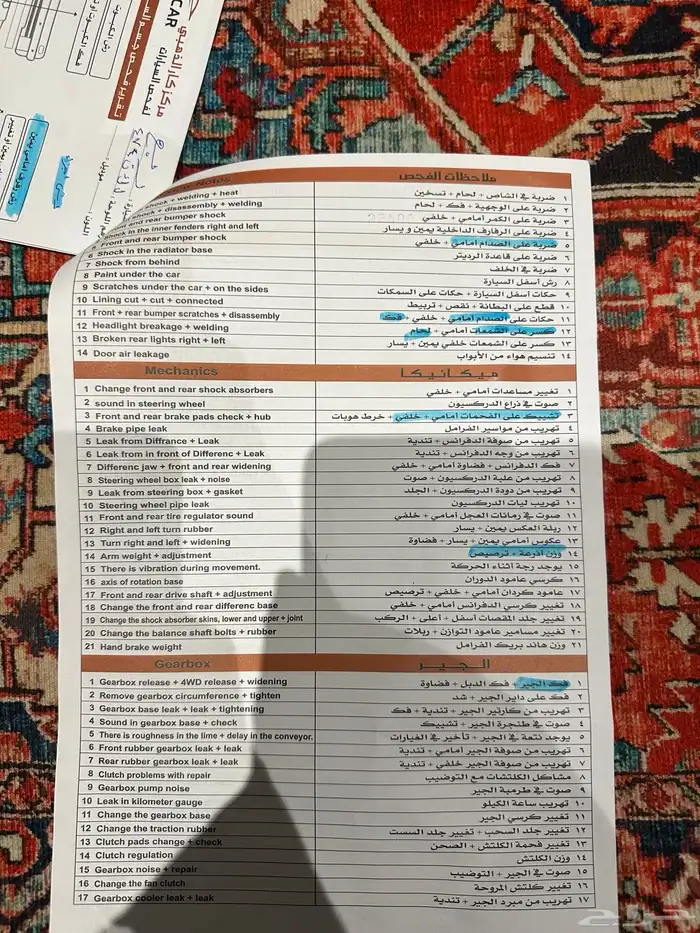 مركز كار الفهمي
لفحص السيارات
CAR
تقرير فحص جسم
ملاحظات الفحص
Notes
shock + welding + heat
١ ضربة في الشاص + لحام + تسخين
shock + disassembly + welding
٢ ضربة على الوجهية + فك + لحام
and rear bumper shock
٣ ضربة على الكمر أمامي + خلفي
Shock in the inner fenders right and left
٤ ضربة على الرفارف الداخلية يمين و يسار
5 Front and rear bumper shock
٥ ضربة على الصدام أمامي + خلفي
6 Shock in the radiator base
٦ ضربة على قاعدة الرديتر
7 Shock from behind
٧ ضربة في الخلف
8 Paint under the car
٨ رش أسفل السيارة
9 Scratches under the car + on the sides
٩ حكات أسفل السيارة + حكات على السمكات
10 Lining cut + cut + connected
١٠ قطع على البطانة + نقص + تربيط
11 Front + rear bumper scratches + disassembly
١١ حكات على الصدام أمامي + خلفي + فك
12 Headlight breakage + welding
١٢ كسر على الشمعات أمامي + لحام
13 Broken rear lights right + left
١٣ كسر على الشمعات خلفي يمين + يسار
14 Door air leakage
١٤ تنسيم هواء من الأبواب
Mechanics
ميكانيكا
1 Change front and rear shock absorbers
١ تغيير مساعدات أمامي + خلفي
2 sound in steering wheel
٢ صوت في ذراع الدركسيون
3 Front and rear brake pads check + hub
٣ تشييك على الفحمات أمامي + خلفي + خرط هوبات
4 Brake pipe leak
٤ تهريب من مواسير الفرامل
5 Leak from Diffrance + Leak
٥ تهريب من صوفة الدفرانس + تندية
6 Leak from in front of Differenc + Leak
٦ تهريب من وجه الدفرانس + تندية
7 Differenc jaw + front and rear widening
٧ فك الدفرانس + فضاوة أمامي + خلفي
8 Steering wheel box leak + noise
٨ تهريب من علبة الدركسيون + صوت
9 Leak from steering box + gasket
٩ تهريب من دودة الدركسيون + الجلد
10 Steering wheel pipe leak
١٠ تهريب ليات الدركسيون
11 Front and rear tire regulator sound
١١ صوت في رمانات العجل أمامي + خلفي
12 Right and left turn rubber
١٢ ربلة العكس يمين + يسار
13 Turn right and left + widening
١٣ عكوس أمامي يمين + يسار + فضاوة
14 Arm weight + adjustment
١٤ وزن أذرعة + ترصيص
15 There is vibration during movement.
١٥ يوجد رجة أثناء الحركة
16 axis of rotation base
١٦ كرسي عامود الدوران
17 Front and rear drive shaft + adjustment
١٧ عامود كردان أمامي + خلفي + ترصيص
18 Change the front and rear differenc base
١٨ تغيير كرسي الدفرانس أمامي + خلفي
19 Change the shock absorber skins, lower and upper + joint
١٩ تغيير جلد المقصات أسفل + أعلى + الركب
20 Change the balance shaft bolts + rubber
٢٠ تغيير مسامير عامود التوازن + ربلات
21 Hand brake weight
٢١ وزن هاند بريك الفرامل
Gearbox
الجير
1 Gearbox release + 4WD release + widening
١ فك الجير + فك الدبل + فضاوة
2 Remove gearbox circumference + tighten
٢ فك على داير الجير + شد
3 Gearbox base leak + leak + tightening
٣ تهريب من كارتير الجير + تندية + فك
4 Sound in gearbox base + check
٤ صوت في طنجرة الجير + تشييك
5 There is roughness in the lime + delay in the conveyor.
٥ يوجد نتعة في الجير + تأخير في الغيارات
6 Front rubber gearbox leak + leak
٦ تهريب من صوفة الجير أمامي + تندية
7 Rear rubber gearbox leak + leak
٧ تهريب من صوفة الجير خلفي + تندية
8 Clutch problems with repair
٨ مشاكل الكلتشات مع التوضيب
9 Gearbox pump noise
٩ صوت في طرمبة الجير
10 Leak in kilometer gauge
١٠ تهريب ساعة الكيلو
11 Change the gearbox base
١١ تغيير كرسي الجير
12 Change the traction rubber
١٢ تغيير جلد السحب + تغيير جلد السست
13 Clutch pads change + check
١٣ تغيير فحمة الكلتش + الصحن
14 Clutch regulation
١٤ وزن الكلتش
15 Gearbox noise + repair
١٥ صوت في الجير + التوضيب
16 Change the fan clutch
١٦ تغيير كلتش المروحة
17 Gearbox cooler leak + leak
١٧ تهريب من مبرد الجير + تندية
حراج